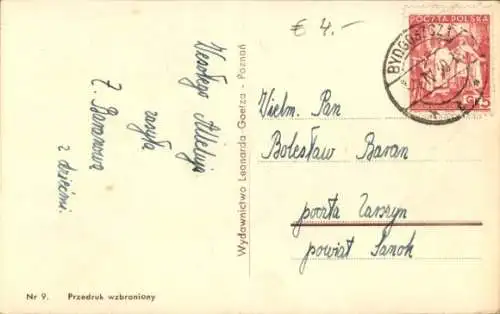 € 4.-
POCZTA POLSKA
BYDGOSZCZ 1
Wesołego Alleluja
zasyła
Z. Baranowa
z dziećmi.
Wydawnictwo Leonarda Goetza - Poznań
Wielm. Pan
Bolesław Baran
poczta Zarszyn
powiat Sanok
Nr 9. Przedruk wzbroniony